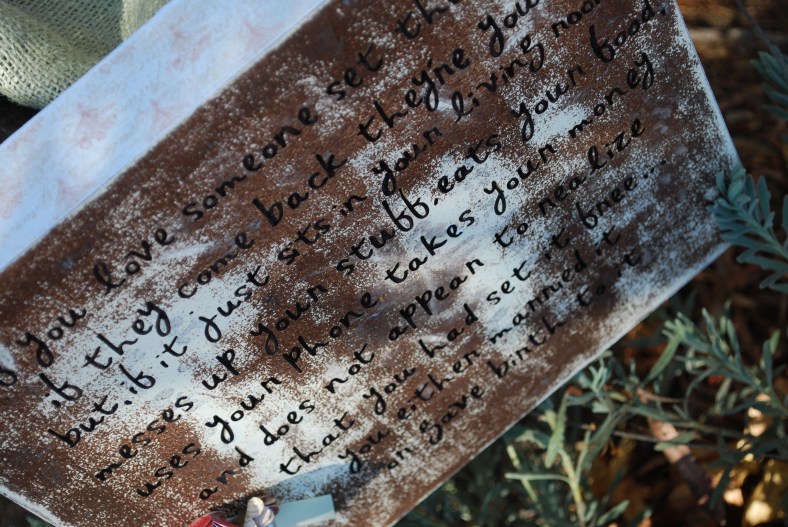 you love someone set th
if they come back they're you
but if it just sits in your living room
messes up your stuff, eats your food,
uses your phone takes your money
and does not appear to realize
that you had set it free...
you either married it
or gave birth to it